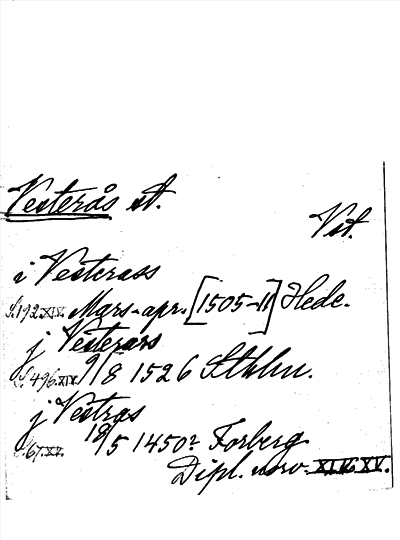 Vesterås st.
Vst.
i Vesterass
S. 192. XIV. Mars-apr. [1505-11] Hede.
j Vesterars
S. 496. XIV. 9/8 1526 Sthlm.
j Vestras
S. 67. XV. 18/5 1450? Forberg.
Dipl. norv. XIV. XV.